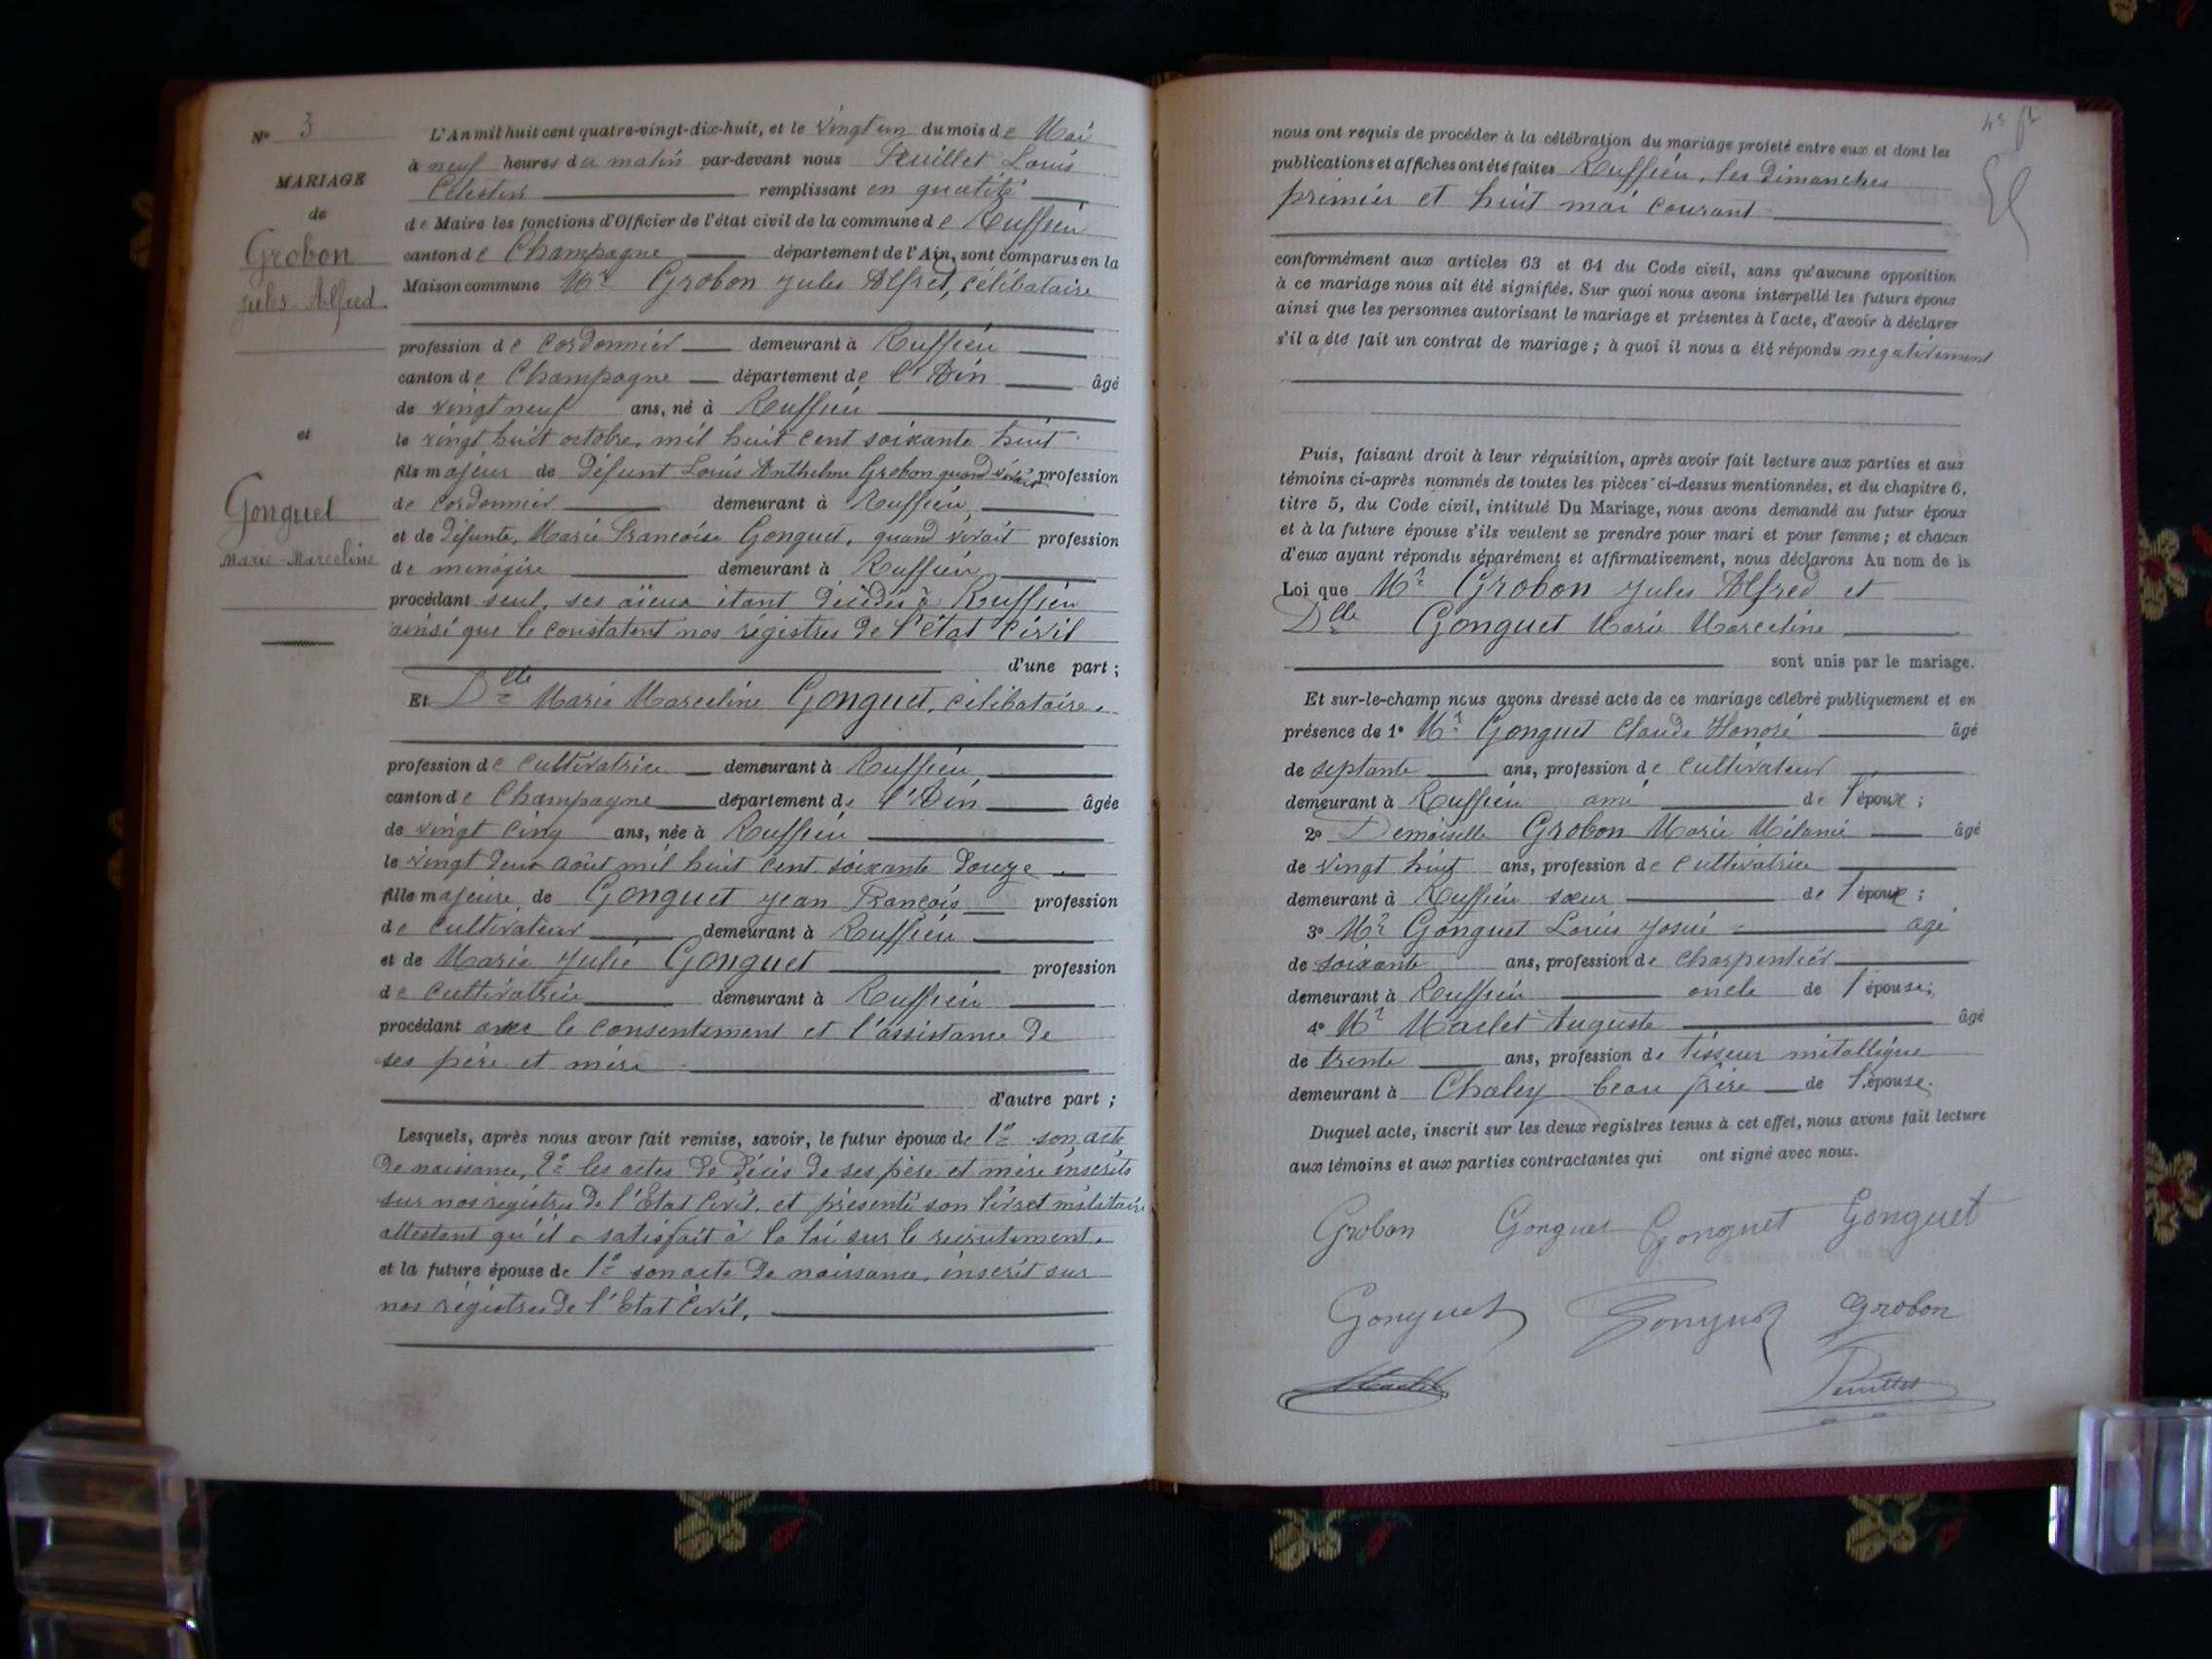 N° 3
MARIAGE
de
Grobon
Jules Alfred.
et
Gonguet
Marie-Marceline
L'An mil huit cent quatre-vingt-dix-huit, et le vingt un du mois de Mai
à neuf heures du matin par-devant nous Feuillet Louis
Célestin remplissant en qualité
de Maire les fonctions d'Officier de l'état civil de la commune de Ruffieu
canton de Champagne département de l'Ain, sont comparus en la
Maison commune Mr Grobon Jules Alfred, célibataire
profession de cordonnier demeurant à Ruffieu
canton de Champagne département de l'Ain âgé
de vingt neuf ans, né à Ruffieu
le vingt huit octobre, mil huit cent soixante huit
fils majeur de défunt Louis Anthelme Grobon quand vivait profession
de cordonnier demeurant à Ruffieu
et de défunte, Marie Françoise Gonguet, quand vivait profession
de ménagère demeurant à Ruffieu
procédant seul, ses aïeux étant décédés à Ruffieu
ainsi que le constatent nos régistres de l'état civil
d'une part ;
Et Dlle Marie Marceline Gonguet, célibataire
profession de cultivatrice demeurant à Ruffieu
canton de Champagne département de l'Ain âgée
de vingt cinq ans, née à Ruffieu
le vingt deux août mil huit cent soixante douze
fille majeure de Gonguet Jean François profession
de cultivateur demeurant à Ruffieu
et de Marie Julie Gonguet profession
de cultivatrice demeurant à Ruffieu
procédant avec le consentement et l'assistance de
ses père et mère
d'autre part ;
Lesquels, après nous avoir fait remise, savoir, le futur époux de 1° son acte
de naissance, 2° les actes de décès de ses père et mère inscrits
sur nos régistres de l'Etat Civil, et présenté son livret militaire
attestant qu'il a satisfait à la loi sur le recrutement.
et la future épouse de 1° son acte de naissance, inscrit sur
nos régistres de l'Etat Civil.
nous ont requis de procéder à la célébration du mariage projeté entre eux et dont les
publications et affiches ont été faites Ruffieu, les dimanches
premier et huit mai courant
conformément aux articles 63 et 64 du Code civil, sans qu'aucune opposition
à ce mariage nous ait été signifiée. Sur quoi nous avons interpellé les futurs époux
ainsi que les personnes autorisant le mariage et présentes à l'acte, d'avoir à déclarer
s'il a été fait un contrat de mariage ; à quoi il nous a été répondu négativement
Puis, faisant droit à leur réquisition, après avoir fait lecture aux parties et aux
témoins ci-après nommés de toutes les pièces ci-dessus mentionnées, et du chapitre 6,
titre 5, du Code civil, intitulé Du Mariage, nous avons demandé au futur époux
et à la future épouse s'ils veulent se prendre pour mari et pour femme ; et chacun
d'eux ayant répondu séparément et affirmativement, nous déclarons Au nom de la
Loi que Mr Grobon Jules Alfred et
Dlle Gonguet Marie Marceline
sont unis par le mariage.
Et sur-le-champ nous avons dressé acte de ce mariage célébré publiquement et en
présence de 1° Mr Gonguet Claude Honoré âgé
de septante ans, profession de cultivateur
demeurant à Ruffieu ami de l'époux ;
2° Demoiselle Grobon Marie Mélanie âgé
de vingt huit ans, profession de cultivatrice
demeurant à Ruffieu soeur de l'époux ;
3° Mr Gonguet Louis Josué âgé
de soixante ans, profession de charpentier
demeurant à Ruffieu oncle de l'épouse ;
4° Mr Maclet Auguste âgé
de trente ans, profession de tisseur métallique
demeurant à Chaley beau frère de l'épouse.
Duquel acte, inscrit sur les deux registres tenus à cet effet, nous avons fait lecture
aux témoins et aux parties contractantes qui ont signé avec nous.
Grobon Gonguet Gonguet Gonguet
Gonguet Gonguet Grobon
Maclet Feuillet